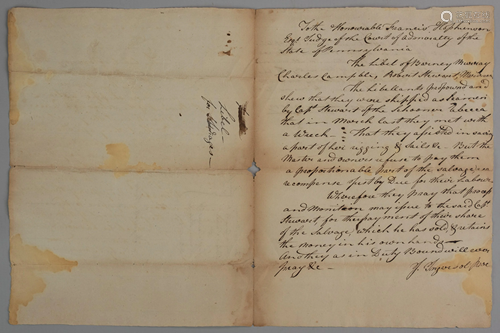 To the Honourable Francis Hopkinson
Esqr Judge of the Court of admoralty of the
State of Pennsylvania
The Libel of Barney Murray
Charles Campble, Robert Stewart
The Libellants
shew that they were shipped as Seamen
by Capt Stewart of the Schooner
that in March last they met with
a Wreck That they assisted in saving
a part of her rigging & Sails & But the
Master and owners refuse to pay them
a proportionable part of the salvage
recompense Justly Due for their Labour
Wherefore they pray that process
and Monition may issue to the said Capt
Stewart, for the payment of their share
of the Salvage, which he has sold & retains
the money in his own hands
And they as in Duty Bound will ever
pray &c
J. Ingersol
Libel
for Salvage